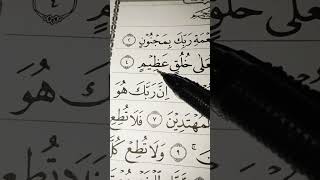 نِعْمَةِ رَبِّكَ بِمَجْنُونٍ ٢
لَعَلَىٰ خُلُقٍ عَظِيمٍ ٤
إِنَّ رَبَّكَ هُوَ
بِالْمُهْتَدِينَ ٧ فَلَا تُطِعِ
وَلَا تُطِعْ كُلَّ